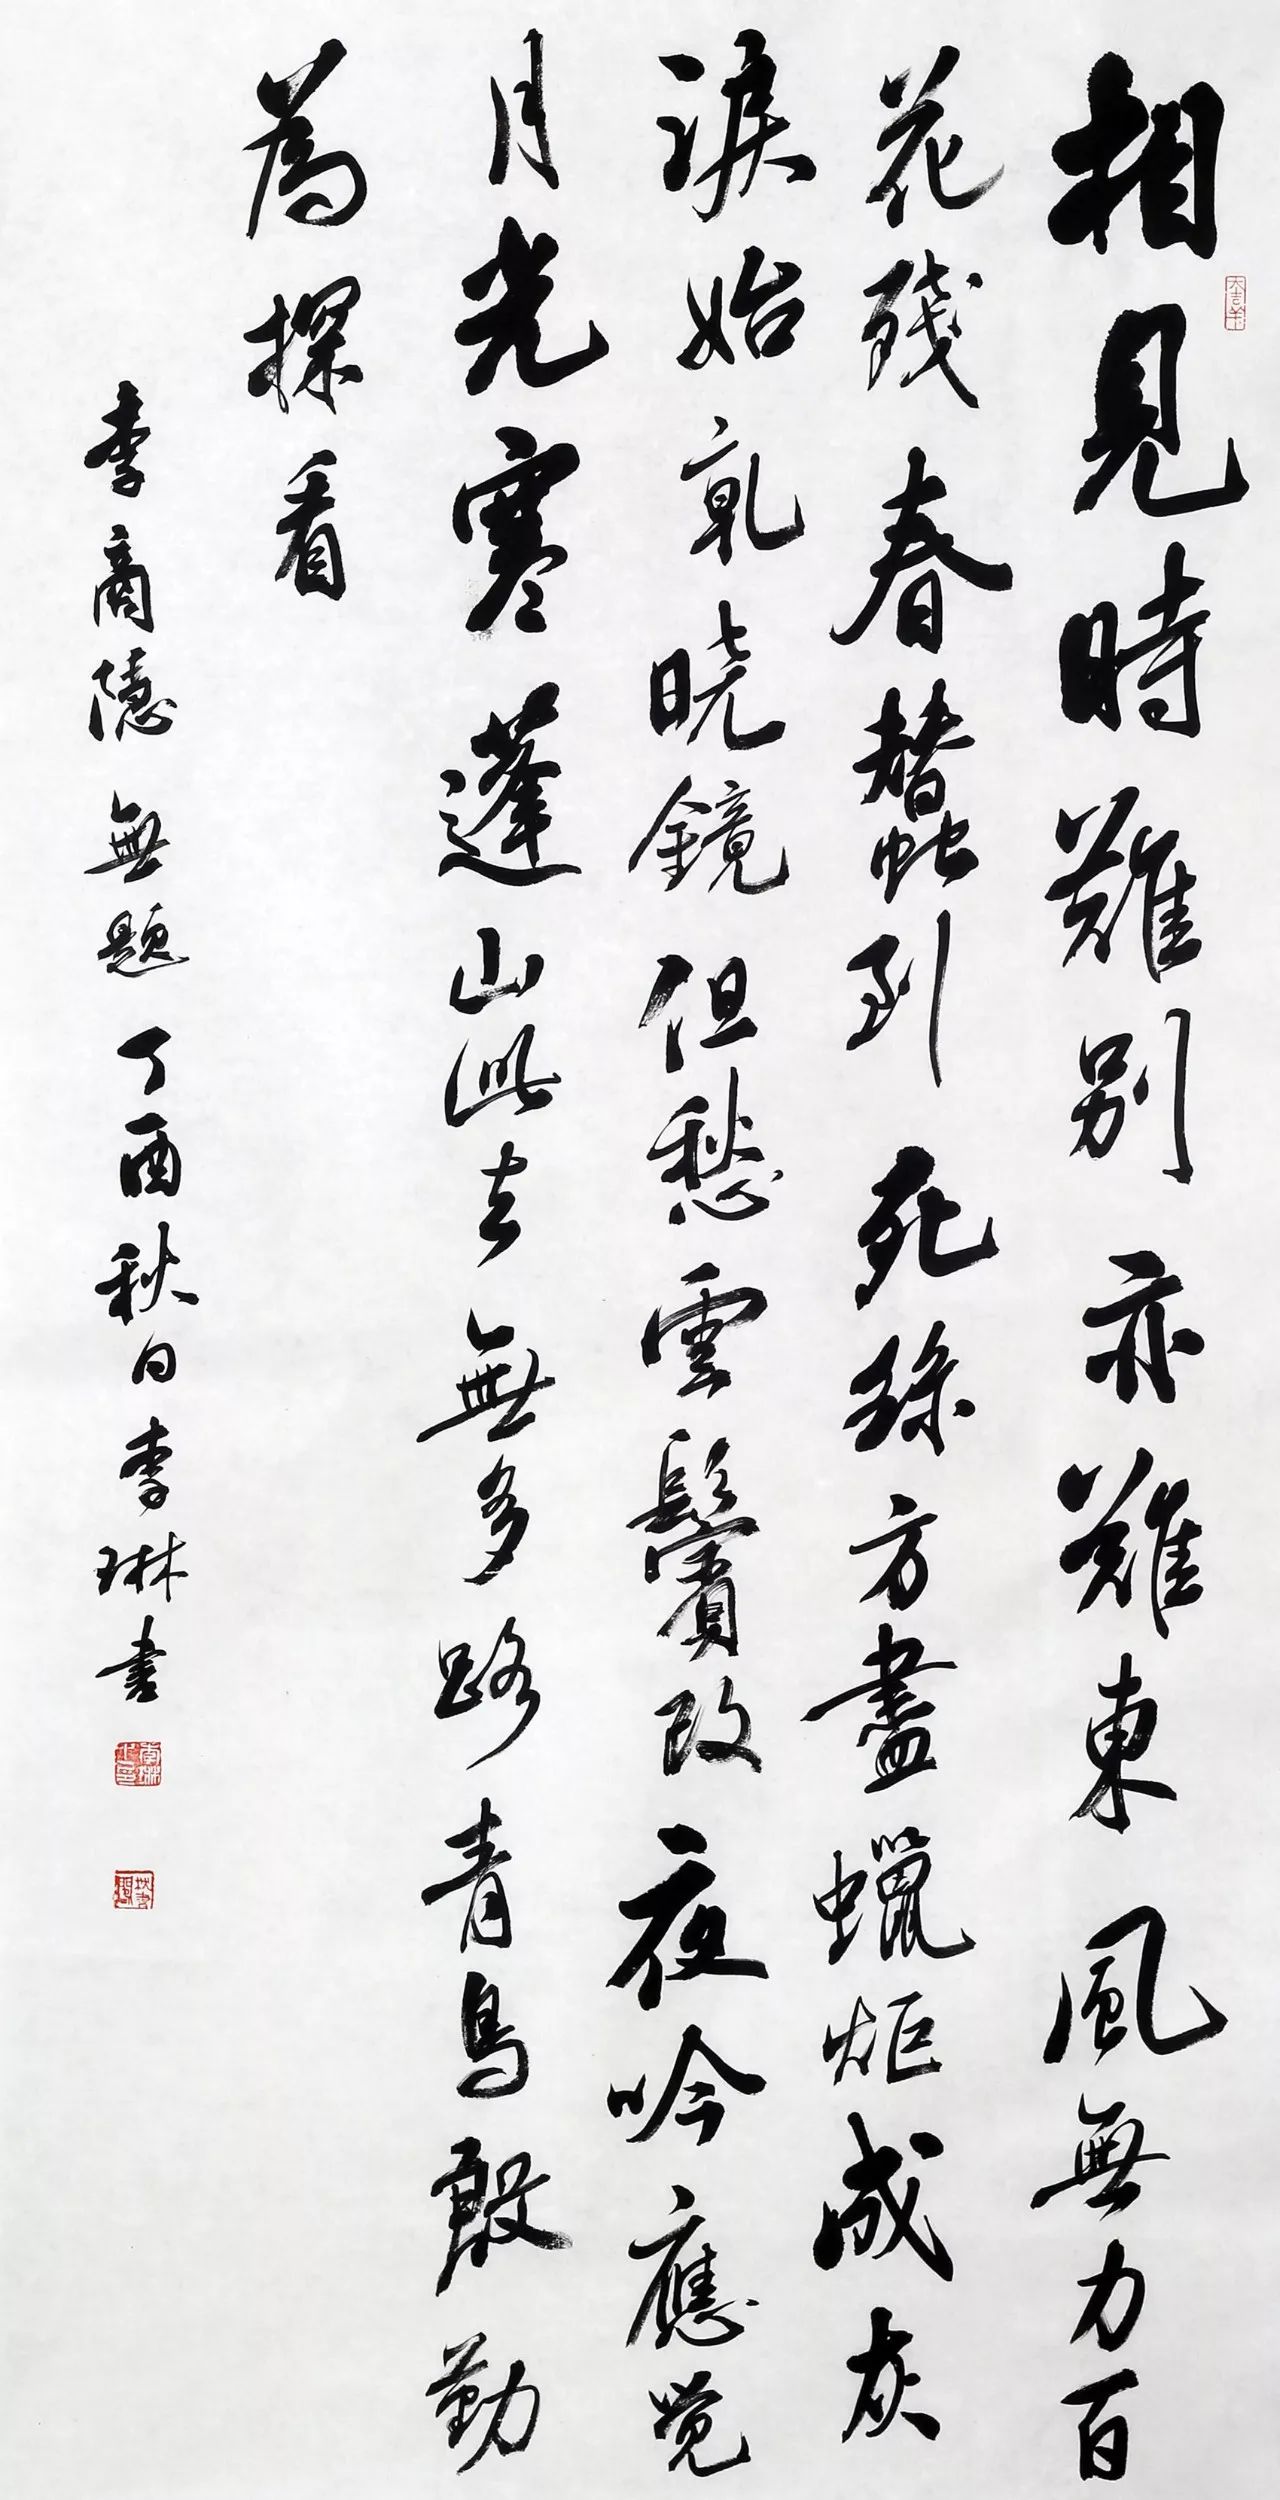 相見時難別亦難東風無力百
花殘春蠶到死絲方盡蠟炬成灰
淚始乾曉鏡但愁雲鬢改夜吟應覺
月光寒蓬山此去無多路青鳥殷勤
為探看
李商隱 無題 丁酉秋日李琳書